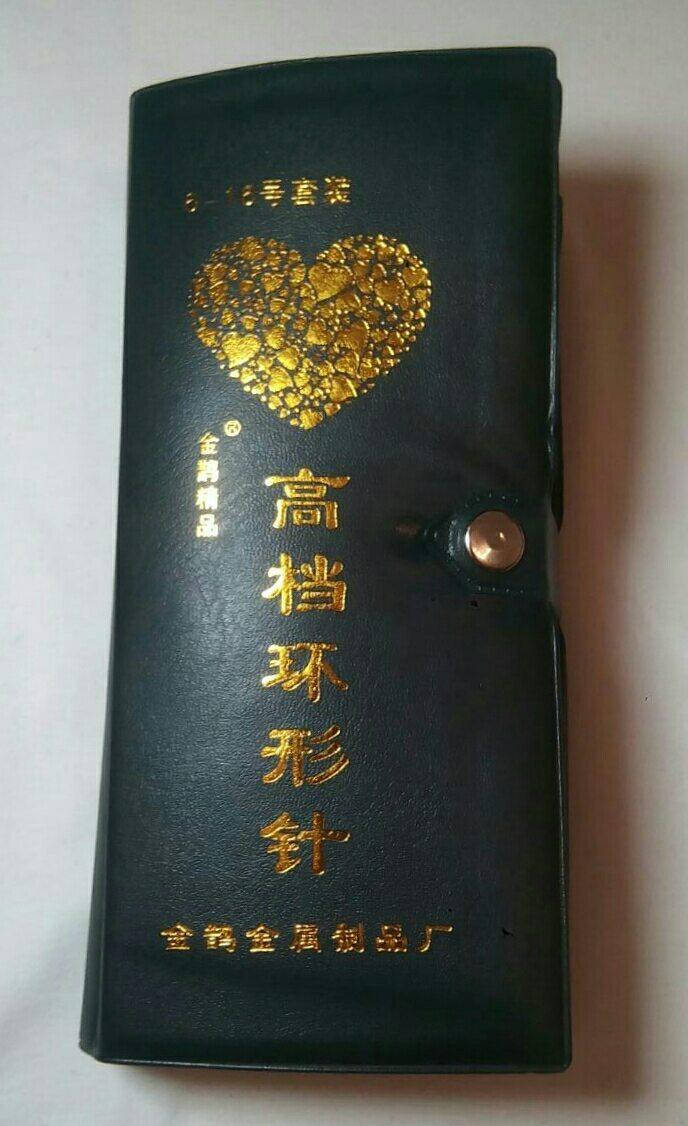 6-16号套装
金鹊精品
®
高档环形针
金鹊金属制品厂